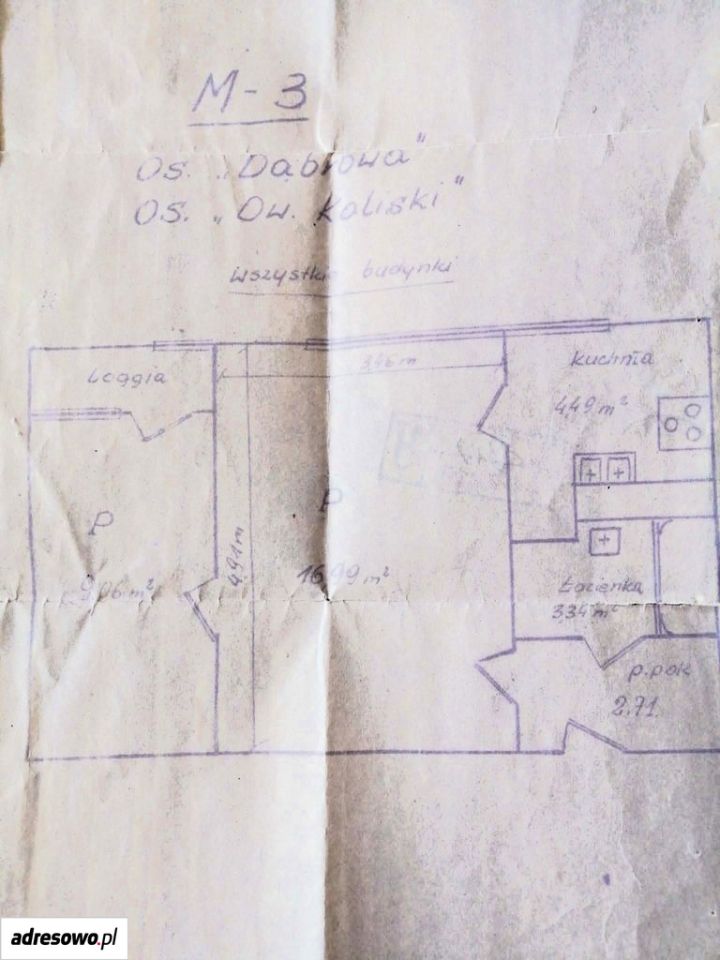 M-3
Os. „Dąbrowa"
OS. „Dw. Kaliski"
Wszystkie budynki
3,46 m
Loggia
kuchnia
4,49 m²
P
P
4,91 m
16,99 m²
9,06 m²
Łazienka
3,34 m²
p.pok
2.71
adresowo.pl